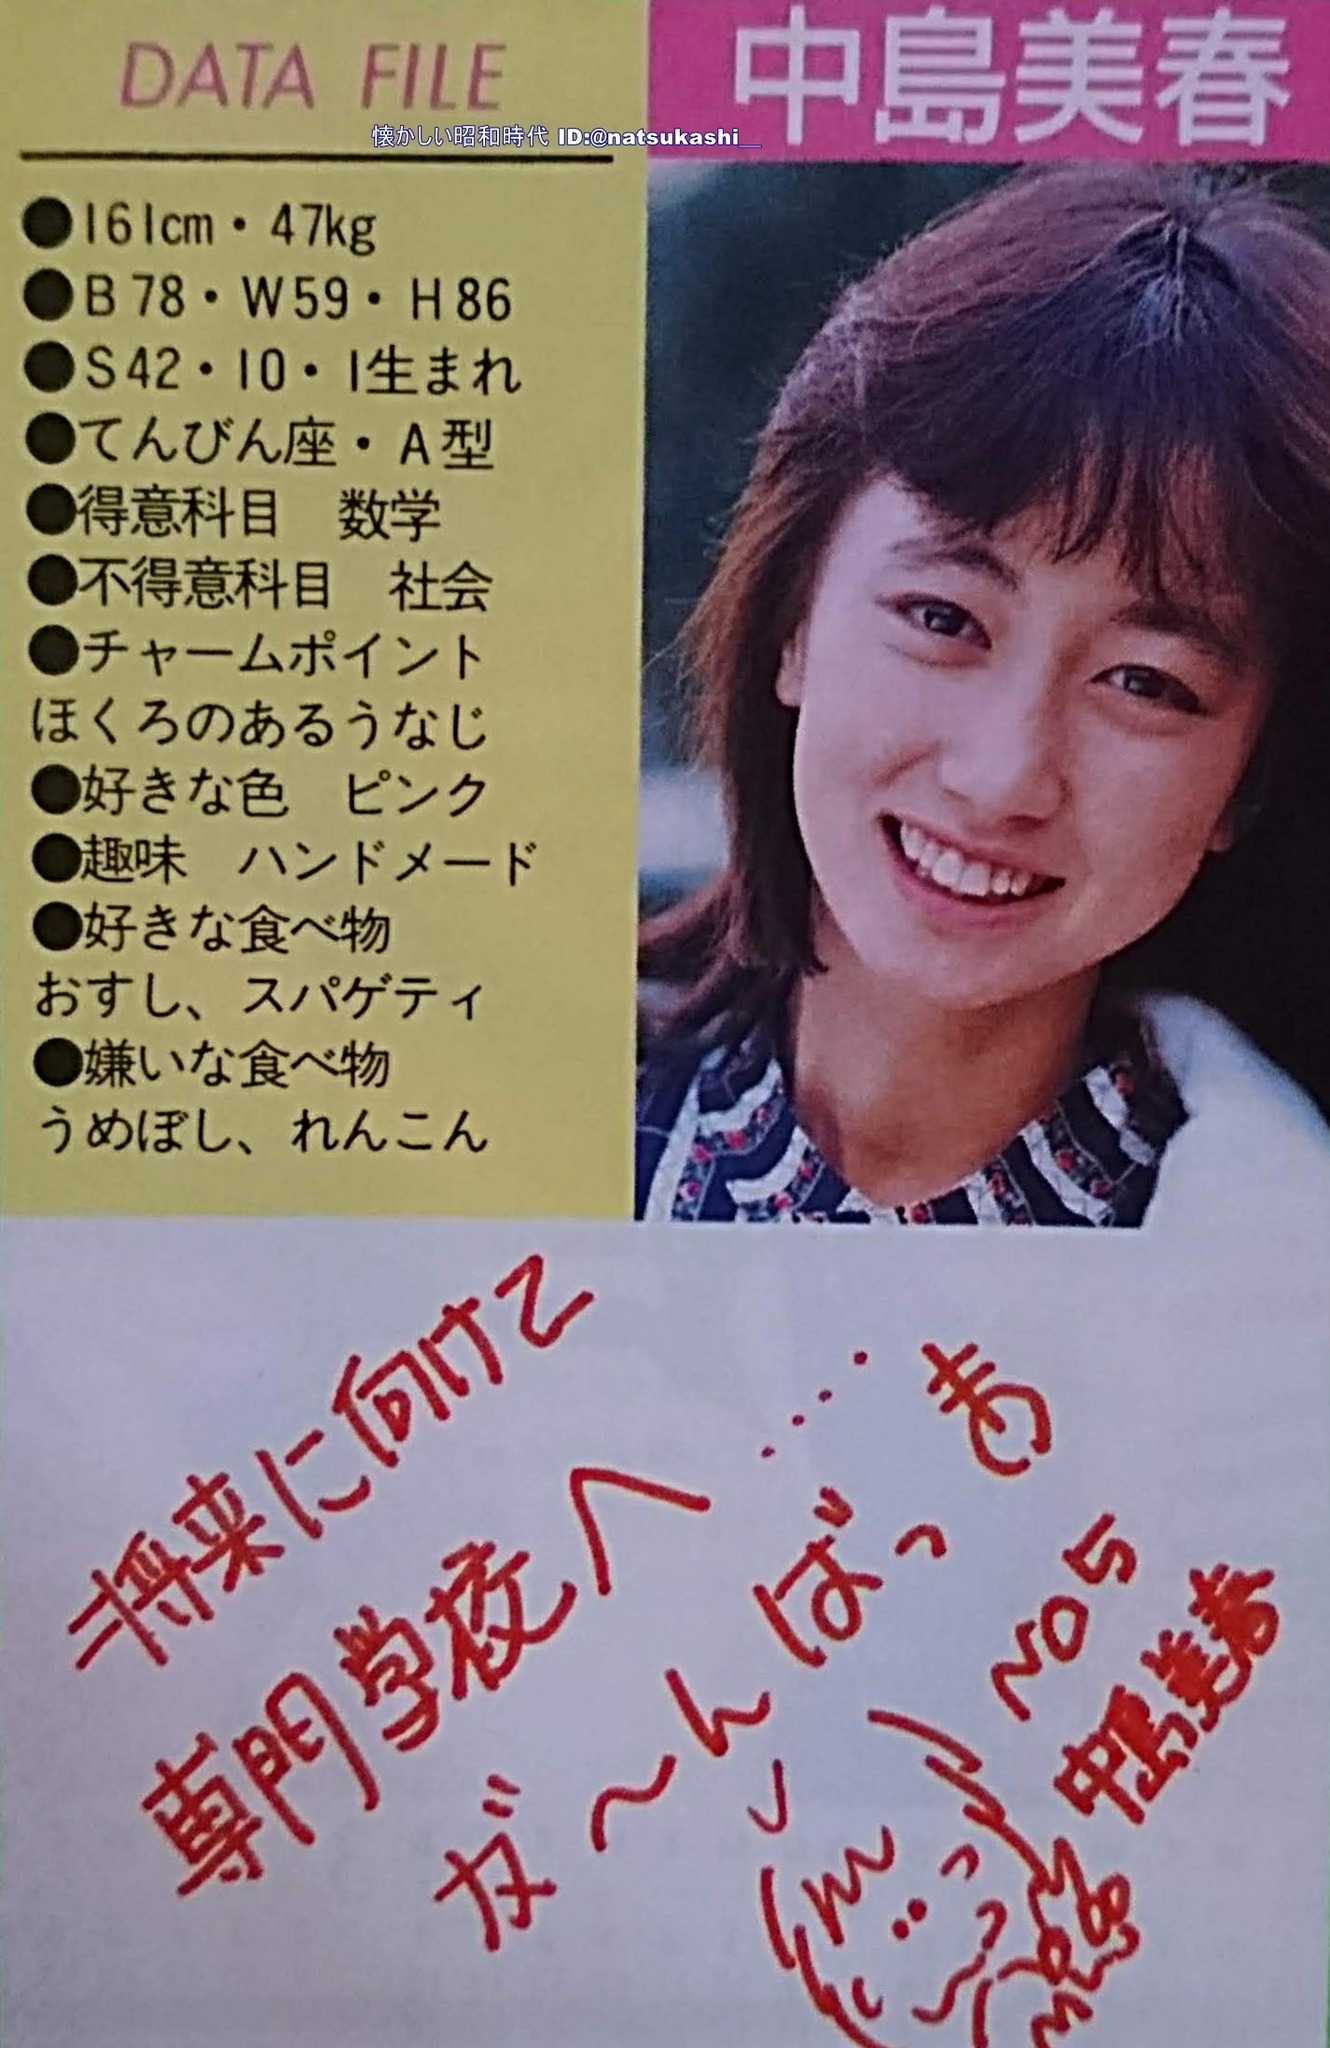 DATA FILE
中島美春
懐かしい昭和時代 ID:@natsukashi__
●161cm・47kg
●B78・W59・H86
●S42・10・1生まれ
●てんびん座・A型
●得意科目　数学
●不得意科目　社会
●チャームポイント
ほくろのあるうなじ
●好きな色　ピンク
●趣味　ハンドメード
●好きな食べ物
おすし、スパゲティ
●嫌いな食べ物
うめぼし、れんこん
将来に向けて
専門学校へ‥‥
が〜んばっ
NO5
中島美春